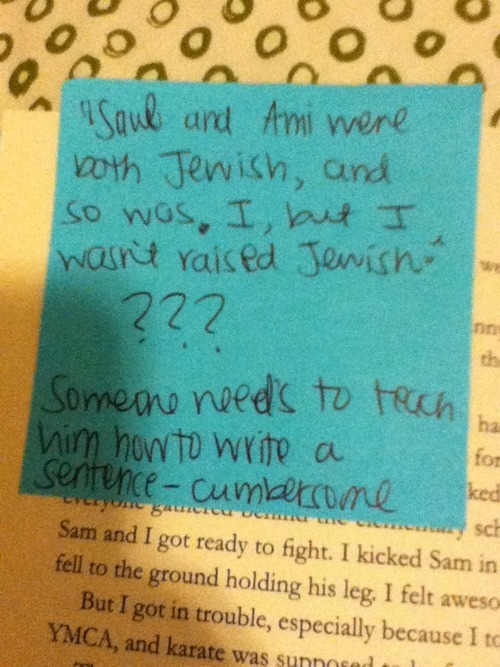 "Saul and Ami were
both Jewish, and
so was, I, but I
wasn't raised Jewish."
???
Someone needs to teach
him how to write a
sentence - cumbersome
everyone gathered behind the elementary sch
Sam and I got ready to fight. I kicked Sam in
fell to the ground holding his leg. I felt aweso
But I got in trouble, especially because I to
YMCA, and karate was supposed